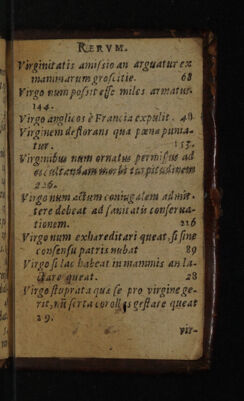 RERVM.
Virginitatis amissio an arguatur ex
mammarum grossitie. 68
Virgo num possit esse miles armatus.
144.
Virgo anglicos è Francia expulit. 48
Virginem deflorans qua pœna punia-
tur. 153.
Virginibus num ornatus permissus ad
occultandam morbi turpitudinem
226.
Virgo num actum coniugalem admit-
tere debeat ad sanitatis conserua-
tionem. 216
Virgo num exhæreditari queat, si sine
consensu patris nubat 89
Virgo si lac habeat in mammis an la-
ctare queat. 28
Virgo stuprata quæ se pro virgine ge-
rit, nũ serta corollas gestare queat
29.
vir-